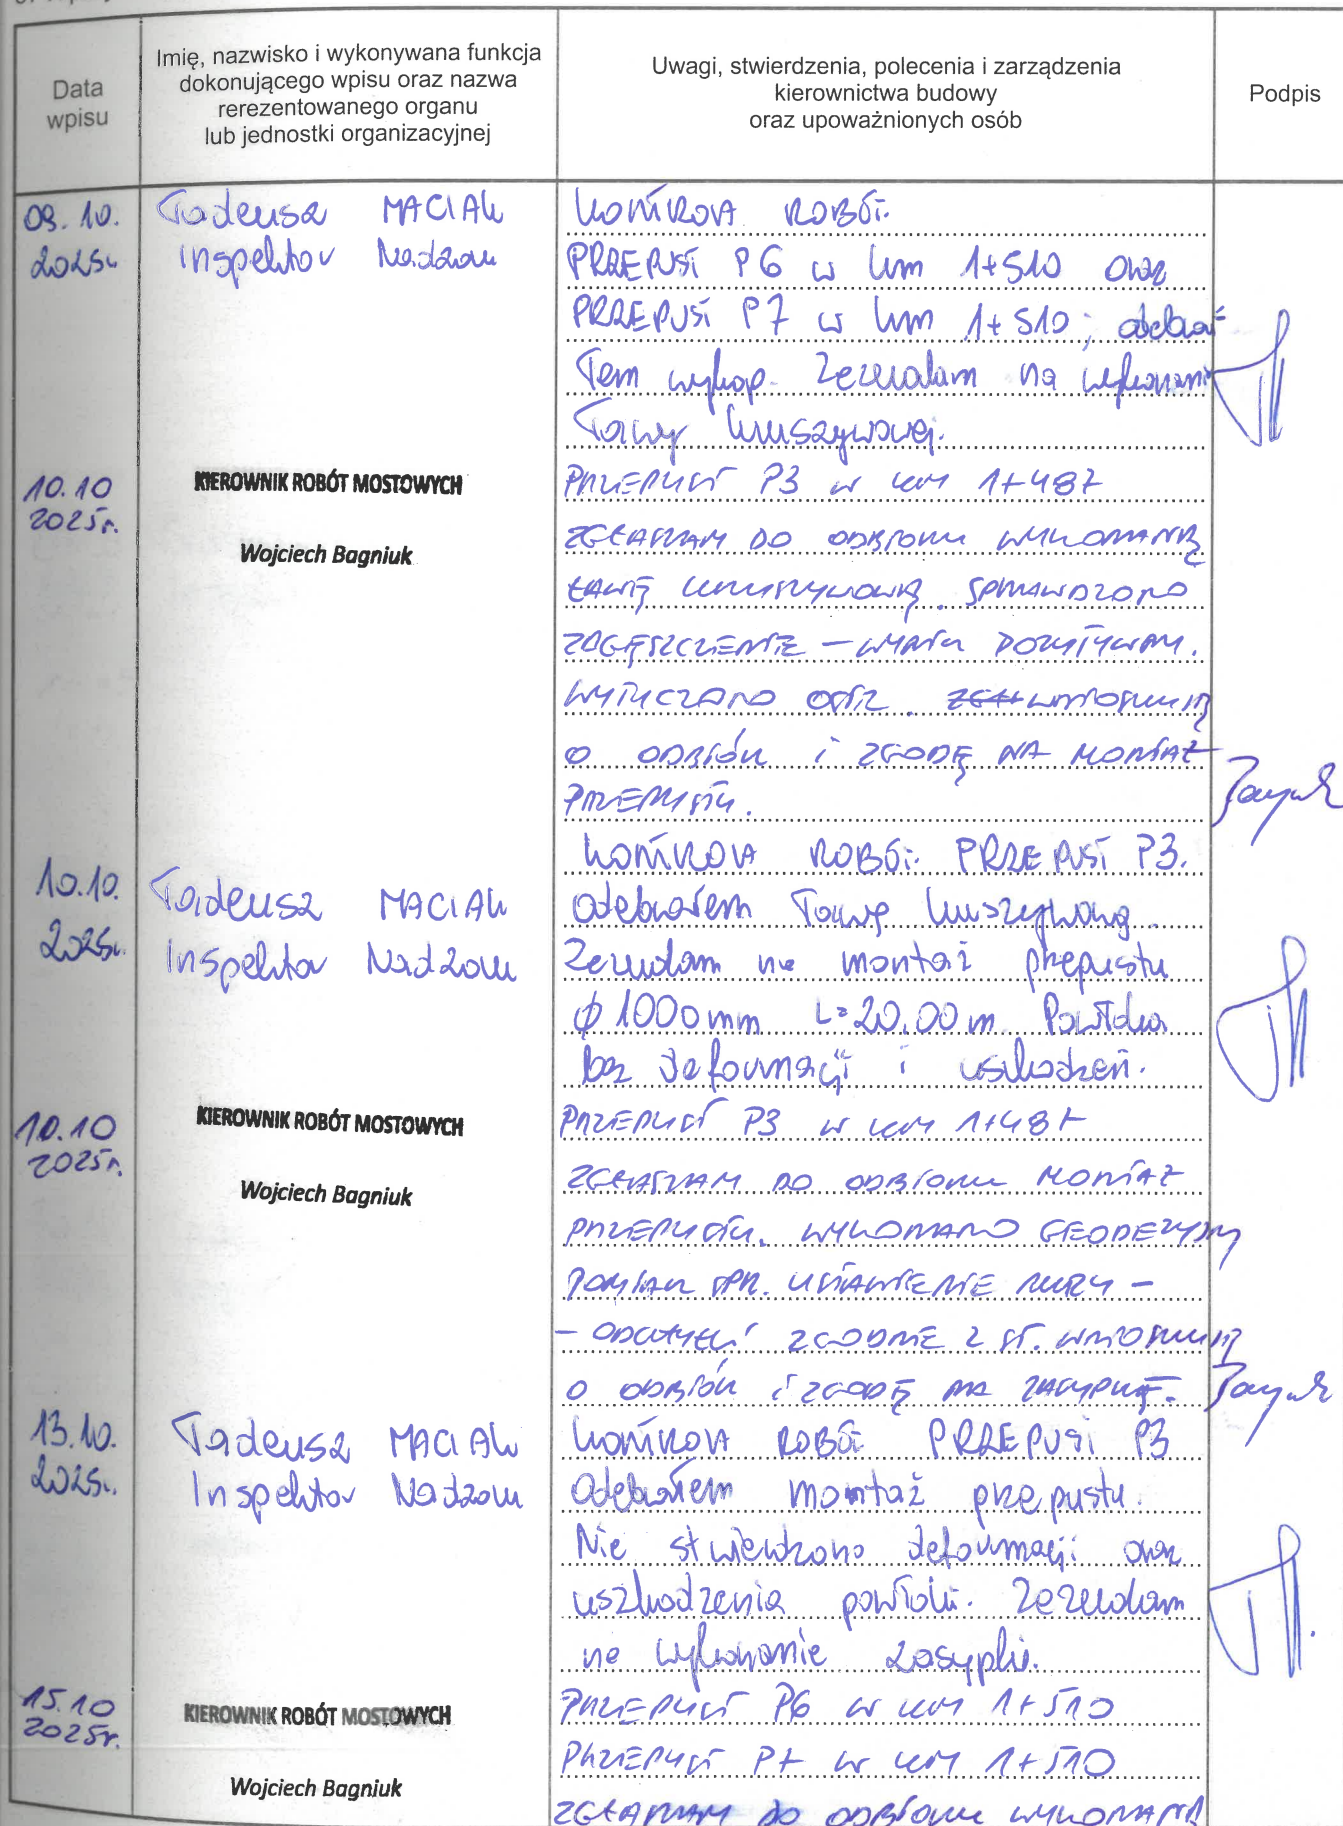 Data
wpisu
Imię, nazwisko i wykonywana funkcja
dokonującego wpisu oraz nazwa
rerezentowanego organu
lub jednostki organizacyjnej
Uwagi, stwierdzenia, polecenia i zarządzenia
kierownictwa budowy
oraz upoważnionych osób
Podpis
09.10.
2025r.
Tadeusz MACIAK
Inspektor Nadzoru
KONTROLA ROBÓT.
PRZEPUST P6 w km 1+510 oraz
PRZEPUST P7 w km 1+510; odebra-
łem wykop. Zezwalam na wykonanie
ławy kruszywowej.
10.10
2025r.
KIEROWNIK ROBÓT MOSTOWYCH
Wojciech Bagniuk
PRZEPUST P3 w km 1+487
ZGŁASZAM DO ODBIORU WYKONANĄ
ŁAWĘ KRUSZYWOWĄ. SPRAWDZONO
ZAGĘSZCZENIE – WYNIK POZYTYWNY.
WYTYCZONO OŚ. WNIOSKUJĘ
O ODBIÓR I ZGODĘ NA MONTAŻ
PRZEPUSTU.
10.10.
2025r.
Tadeusz MACIAK
Inspektor Nadzoru
KONTROLA ROBÓT. PRZEPUST P3.
Odebrałem ławę kruszywową.
Zezwalam na montaż przepustu
ϕ 1000mm L=20,00m. Powłoka
bez deformacji i uszkodzeń.
10.10
2025r.
KIEROWNIK ROBÓT MOSTOWYCH
Wojciech Bagniuk
PRZEPUST P3 w km 1+487
ZGŁASZAM DO ODBIORU MONTAŻ
PRZEPUSTU. WYKONANO GEODEZYJNY
POMIAR SPR. USTAWIENIE RURY –
– ODCHYŁKI ZGODNIE Z ST. WNIOSKUJĘ
O ODBIÓR I ZGODĘ NA ZASYPKĘ.
13.10.
2025r.
Tadeusz MACIAK
Inspektor Nadzoru
KONTROLA ROBÓT PRZEPUST P3
Odebrałem montaż przepustu.
Nie stwierdzono deformacji oraz
uszkodzenia powłoki. Zezwalam
na wykonanie zasypki.
15.10
2025r.
KIEROWNIK ROBÓT MOSTOWYCH
Wojciech Bagniuk
PRZEPUST P6 w km 1+510
PRZEPUST P7 w km 1+510
ZGŁASZAM DO ODBIORU WYKONANĄ